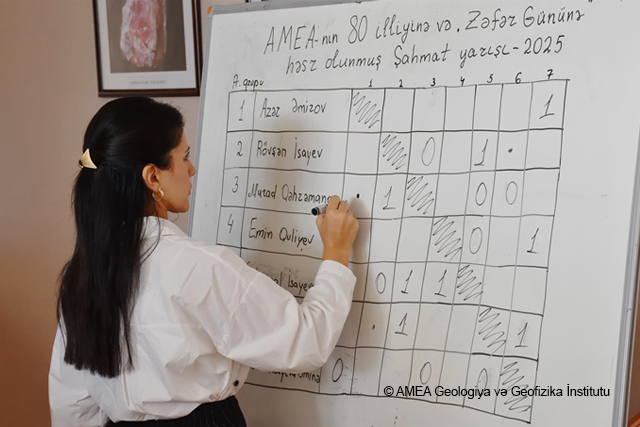 AMEA-nın 80 illiyinə və "Zəfər Gününə"
həsr olunmuş Şahmat yarışı-2025
A. qrupu 1 2 3 4 5 6 7
1 Azər Əmirov 1
2 Rövşən İsayev 0 1 .
3 Murad 1 0 0
4 Emin Quliyev 0 1
İsayev 0 1 1
. 1 1
0 0 0
© AMEA Geologiya və Geofizika İnstitutu